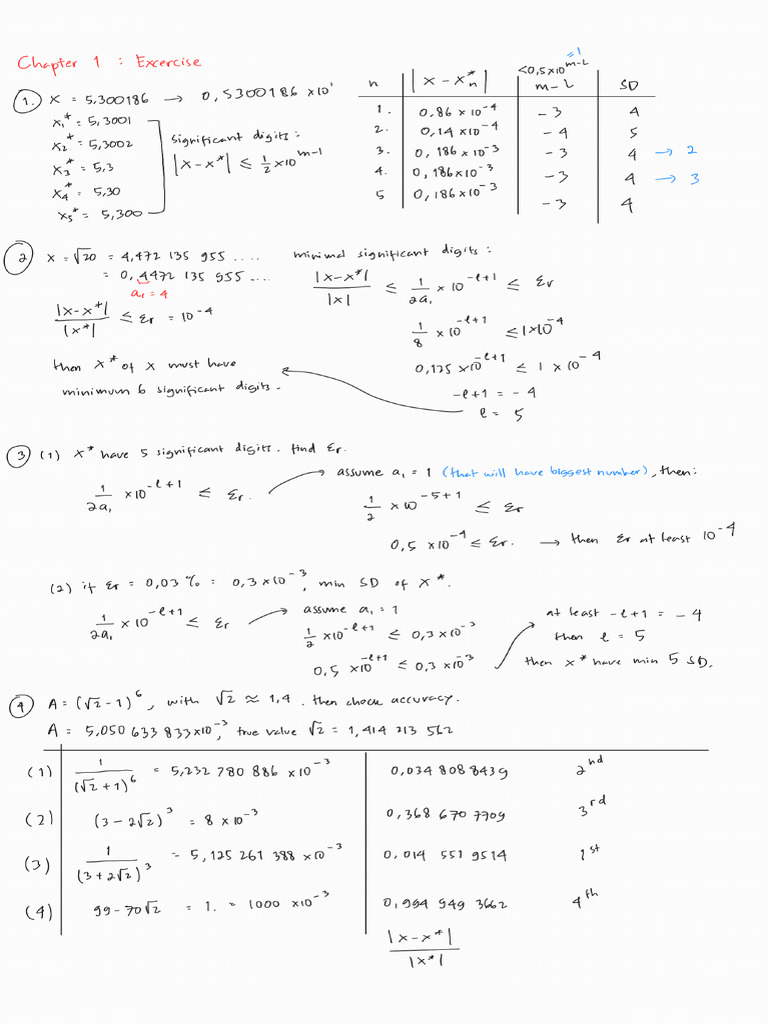 Chapter 1 : Exercise
1. x = 5,300186 → 0,5300186 x10¹
x₁* = 5,3001
x₂* = 5,3002
x₃* = 5,3
x₄* = 5,30
x₅* = 5,300
significant digits :
|x-x*| ≤ ½ x10^(m-l)
=1
n |x-xₙ*| <0,5x10^(m-l) m-l SD
1. 0,86 x10⁻⁴ -3 4
2. 0,14 x10⁻⁴ -4 5
3. 0,186x10⁻³ -3 4 → 2
4. 0,186x10⁻³ -3 4 → 3
5 0,186x10⁻³ -3 4
2 x = √20 = 4,472 135 955 ....
= 0,4472 135 955 ....
a₁ = 4
|x-x*|/|x*| ≤ Er = 10⁻⁴
then x* of x must have
minimum 6 significant digits.
minimal significant digits :
|x-x*|/|x| ≤ 1/2a₁ x 10^(-l+1) ≤ Er
1/8 x10^(-l+1) ≤ 1x10⁻⁴
0,125 x10^(-l+1) ≤ 1 x 10⁻⁴
-l+1 = -4
l = 5
3 (1) x* have 5 significant digits. find Er.
1/2a₁ x10^(-l+1) ≤ Er.
→ assume a₁ = 1 (that will have biggest number), then:
1/2 x10^(-5+1) ≤ Er
0,5 x10⁻⁴ ≤ Er. → then Er at least 10⁻⁴
(2) if Er = 0,03% = 0,3x10⁻³, min SD of x*.
1/2a₁ x10^(-l+1) ≤ Er
→ assume a₁ = 1
1/2 x10^(-l+1) ≤ 0,3x10⁻³
0,5 x10^(-l+1) ≤ 0,3 x10⁻³
at least -l+1 = -4
then l = 5
then x* have min 5 SD.
4 A = (√2-1)⁶, with √2 ≈ 1,4. then check accuracy.
A = 5,050 633 833x10⁻³, true value √2 = 1,414 213 562
(1) 1/(√2+1)⁶ = 5,232 780 886 x10⁻³ 0,034 808 8439 2nd
(2) (3-2√2)³ = 8 x10⁻³ 0,368 670 7709 3rd
(3) 1/(3+2√2)³ = 5,125 261 388 x10⁻³ 0.014 551 9514 1st
(4) 99-70√2 = 1. = 1000 x10⁻³ 0,994 949 3662 4th
|x-x*|/|x*|